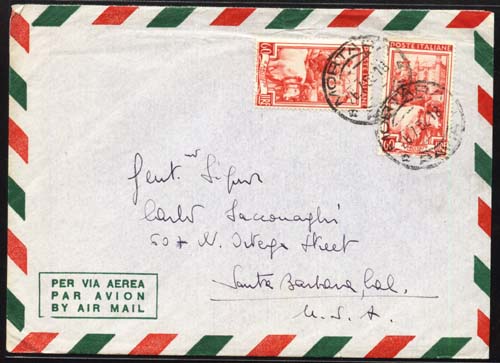 POSTE ITALIANE
MORTARA
Gent. mo Signor
Carlo Sacconaghi
607 N. Ortega Street
Santa Barbara, Cal.
U. S. A.
PER VIA AEREA
PAR AVION
BY AIR MAIL